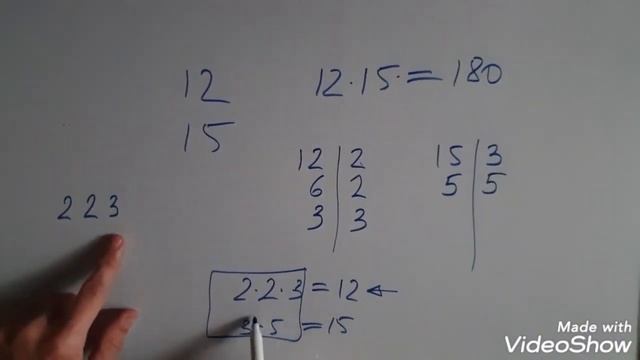 12
15
12·15·=180
12 | 2
6 | 2
3 | 3
15 | 3
5 | 5
2 2 3
2·2·3 = 12 ←
3·5 = 15
Made with
VideoShow